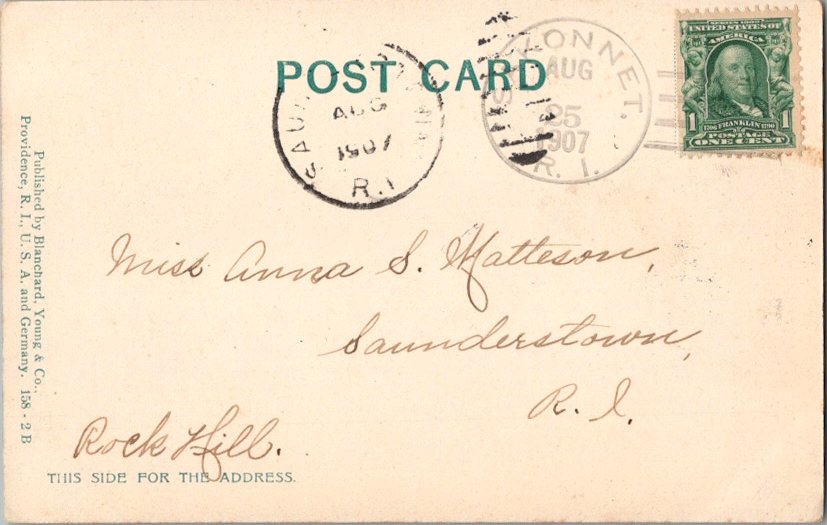 POST CARD
AUG
1907
R.I
AUG
25
1907
R. I.
SERIES 1902
UNITED STATES OF
AMERICA
1 1
1706 FRANKLIN 1790
POSTAGE
ONE CENT
Miss Anna S. Matteson,
Saunderstown,
R. I.
Rock Hill.
THIS SIDE FOR THE ADDRESS.
Published by Blanchard, Young & Co.,
Providence, R. I., U. S. A. and Germany. 158 - 2 B